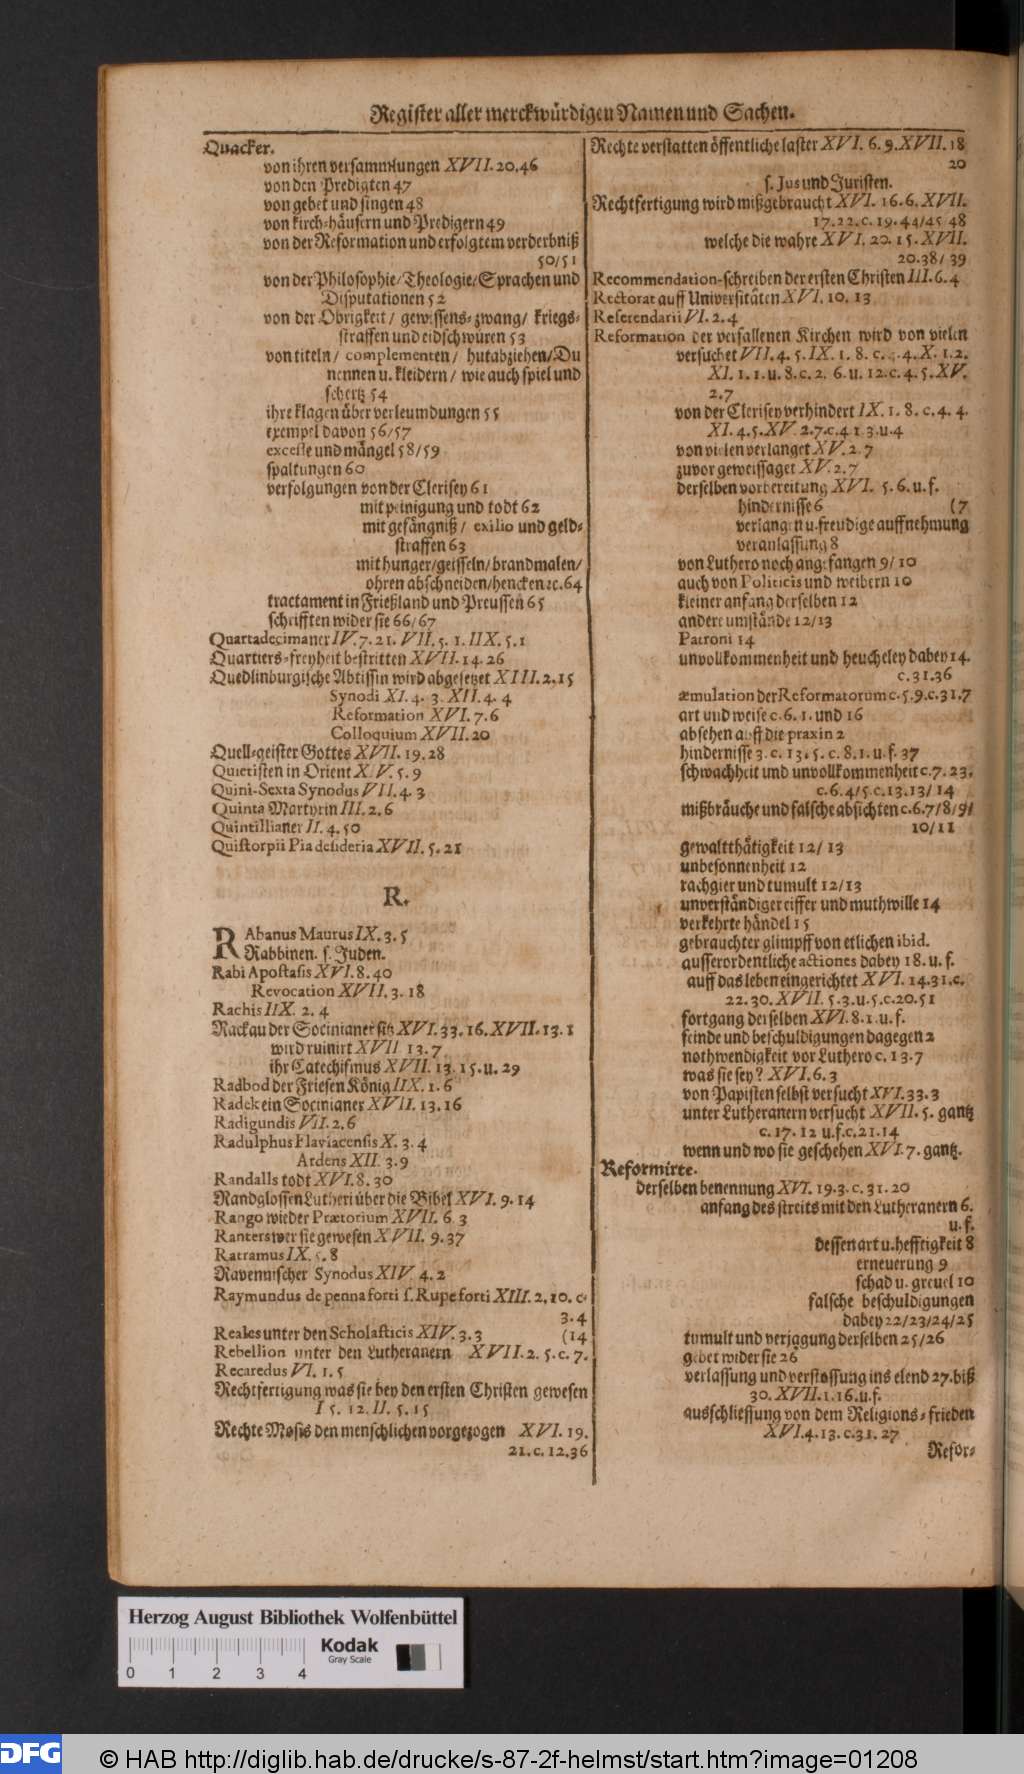 Register aller merckwürdigen Namen und Sachen.
Quacker.
von ihren versammlungen XVII. 20. 46
von den Predigten 47
von gebet und singen 48
von kirch-häusern und Predigern 49
von der Reformation und erfolgtem verderbniß
50/51
von der Philosophie/Theologie/Sprachen und
Disputationen 52
von der Obrigkeit/ gewissens-zwang/ kriegs-
straffen und eidschwüren 53
von titeln/ complementen/ hutabziehen/Du
nennen u. kleidern/ wie auch spiel und
schertz 54
ihre klagen über verleumdungen 55
exempel davon 56/57
excesse und mängel 58/59
spaltungen 60
verfolgungen von der Clerisey 61
mit peinigung und todt 62
mit gefängniß/ exilio und geld-
straffen 63
mit hunger/geisseln/brandmalen/
ohren abschneiden/hencken ꝛc. 64
tractament in Frießland und Preussen 65
schrifften wider sie 66/67
Quartadecimaner IV. 7. 21. VII. 5. 1. IIX. 5. 1
Quartiers-freyheit bestritten XVII. 14. 26
Quedlinburgische Abtissin wird abgesetzet XIII. 2. 15
Synodi XI. 4. 3. XII. 4. 4
Reformation XVI. 7. 6
Colloquium XVII. 20
Quell-geister Gottes XVII. 19. 28
Quietisten in Orient XIV. 5. 9
Quini-Sexta Synodus VII. 4. 3
Quinta Martyrin III. 2. 6
Quintillianer II. 4. 50
Quistorpii Pia desideria XVII. 5. 21
R.
RAbanus Maurus IX. 3. 5
Rabbinen. s. Juden.
Rabi Apostasis XVI. 8. 40
Revocation XVII. 3. 18
Rachis IIX. 2. 4
Rackau der Socinianer sitz XVI. 33. 16. XVII. 13. 1
wird ruinirt XVII 13. 7
ihr Catechismus XVII. 13. 15. u. 29
Radbod der Friesen König IIX. 1. 6
Radek ein Socinianer XVII. 13. 16
Radigundis VII. 2. 6
Radulphus Flaviacensis X. 3. 4
Ardens XII. 3. 9
Randalls todt XVI. 8. 30
Randglossen Lutheri über die Bibel XVI. 9. 14
Rango wieder Prætorium XVII. 6 3
Ranters wer sie gewesen XVII. 9. 37
Ratramus IX. 5. 8
Ravennischer Synodus XIV. 4. 2
Raymundus de penna forti s. Rupe forti XIII. 2. 10. c.
3. 4
Reales unter den Scholasticis XIV. 3. 3 (14
Rebellion unter den Lutheranern XVII. 2. 5. c. 7.
Recaredus VI. 1. 5
Rechtfertigung was sie bey den ersten Christen gewesen
I 5. 12. II. 5. 15
Rechte Mosis den menschlichen vorgezogen XVI. 19.
21. c. 12. 36
Rechte verstatten öffentliche laster XVI. 6. 9. XVII. 18
20
s. Jus und Juristen.
Rechtfertigung wird mißgebraucht XVI. 16. 6. XVII.
17. 22. c. 19. 44/45 48
welche die wahre XVI. 20. 15. XVII.
20. 38/ 39
Recommendation-schreiben der ersten Christen III. 6. 4
Rectorat auff Universitäten XVI. 10. 13
Referendarii VI. 2. 4
Reformation der verfallenen Kirchen wird von vielen
versuchet VII. 4. 5. IX. 1. 8. c. 4. 4. X. 1. 2.
XI. 1. 1. u. 8. c. 2. 6. u. 12. c. 4. 5. XV.
2. 7
von der Clerisey verhindert IX. 1. 8. c. 4. 4.
XI. 4. 5. XV. 2. 7. c. 4 1. 3. u. 4
von vielen verlanget XV. 2. 7
zuvor geweissaget XV. 2. 7
derselben vorbereitung XVI. 5. 6. u. f.
hindernisse 6 (7
verlangen u. freudige auffnehmung
veranlassung 8
von Luthero noch angefangen 9/ 10
auch von Politicis und weibern 10
kleiner anfang derselben 12
andere umstände 12/13
Patroni 14
unvollkommenheit und heucheley dabey 14.
c. 31. 36
æmulation der Reformatorum c. 5. 9. c. 31. 7
art und weise c. 6. 1. und 16
absehen auff die praxin 2
hindernisse 3. c. 13. 5. c. 8. 1. u. f. 37
schwachheit und unvollkommenheit c. 7. 23.
c. 6. 4/ 5. c. 13. 13/ 14
mißbräuche und falsche absichten c. 6. 7/ 8/ 9/
10/ 11
gewaltthätigkeit 12/ 13
unbesonnenheit 12
rachgier und tumult 12/13
unverständiger eiffer und muthwille 14
verkehrte händel 15
gebrauchter glimpff von etlichen ibid.
ausserordentliche actiones dabey 18. u. f.
auff das leben eingerichtet XVI. 14. 31. c.
22. 30. XVII. 5. 3. u. 5. c. 20. 51
fortgang derselben XVI. 8. 1. u. f.
feinde und beschuldigungen dagegen 2
nothwendigkeit vor Luthero c. 13. 7
was sie sey? XVI. 6. 3
von Papisten selbst versucht XVI. 33. 3
unter Lutheranern versucht XVII. 5. gantz
c. 17. 12 u. f. c. 21. 14
wenn und wo sie geschehen XVI. 7. gantz.
Reformirte.
derselben benennung XVI. 19. 3. c. 31. 20
anfang des streits mit den Lutheranern 6.
u. f.
dessen art u. hefftigkeit 8
erneuerung 9
schad u. greuel 10
falsche beschuldigungen
dabey 22/23/24/25
tumult und verjagung derselben 25/26
gebet wider sie 26
verlassung und verstossung ins elend 27. biß
30. XVII. 1. 16. u. f.
ausschliessung von dem Religions-frieden
XVI. 4. 13. c. 31. 27
Refor-
Herzog August Bibliothek Wolfenbüttel
Kodak
Gray Scale
0 1 2 3 4
DFG © HAB http://diglib.hab.de/drucke/s-87-2f-helmst/start.htm?image=01208